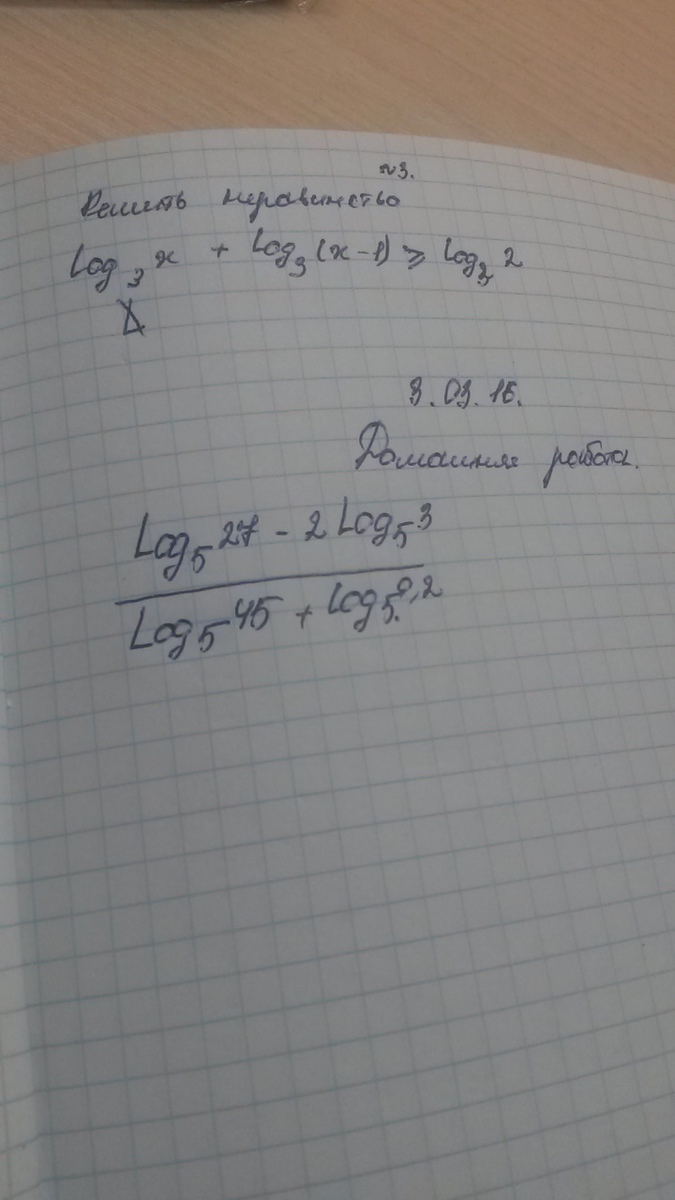 №3.
Решить неравинство
Log₃ x + Log₃ (x-1) ⩾ Log₃ 2
3.03.16.
Домашняя работа.
Log₅ 27 - 2 Log₅ 3
Log₅ 45 + Log₅ 0,2